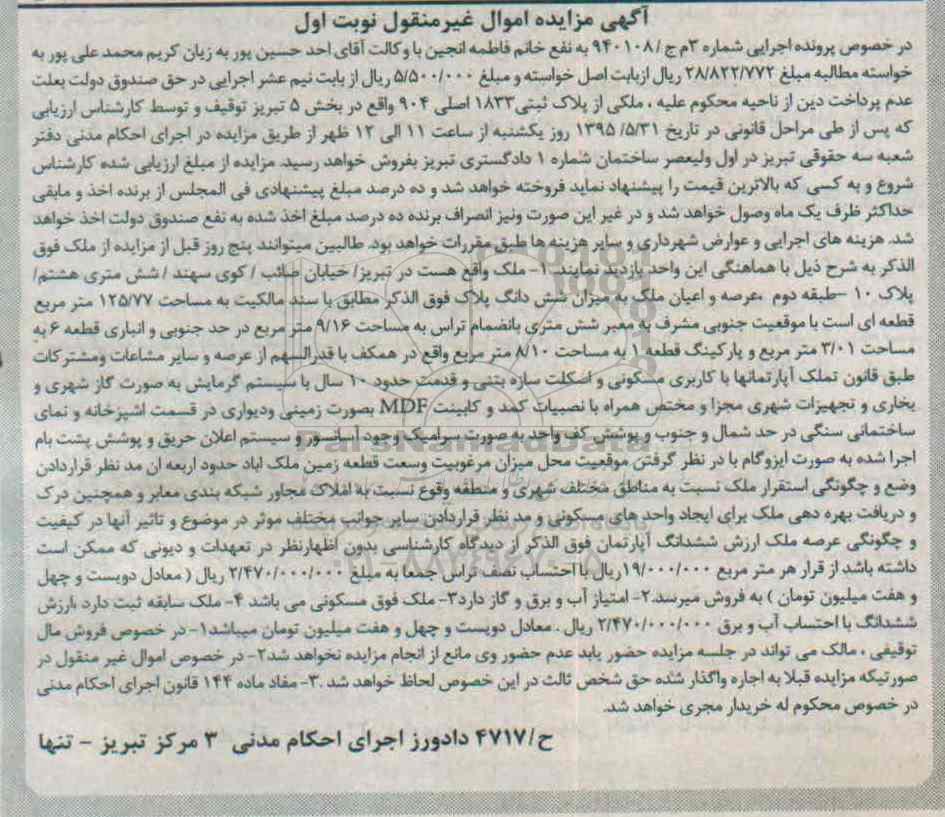 آگهی مزایده اموال غیرمنقول نوبت اول
در خصوص پرونده اجرایی شماره ۳م ج /۹۴۰۱۰۸ به نفع خانم فاطمه انجین با وکالت آقای احد حسین پور به زیان کریم محمد علی پور به
خواسته مطالبه مبلغ ۲۸/۸۲۲/۷۷۲ ریال ازبابت اصل خواسته و مبلغ ۵/۵۰۰/۰۰۰ ریال از بابت نیم عشر اجرایی در حق صندوق دولت بعلت
عدم پرداخت دین از ناحیه محکوم علیه ، ملکی از پلاک ثبتی۱۸۳۳ اصلی ۹۰۴ واقع در بخش ۵ تبریز توقیف و توسط کارشناس ارزیابی
که پس از طی مراحل قانونی در تاریخ ۱۳۹۵ /۵/۳۱ روز یکشنبه از ساعت ۱۱ الی ۱۲ ظهر از طریق مزایده در اجرای احکام مدنی دفتر
شعبه سه حقوقی تبریز در اول ولیعصر ساختمان شماره ۱ دادگستری تبریز بفروش خواهد رسید. مزایده از مبلغ ارزیابی شده کارشناس
شروع و به کسی که بالاترین قیمت را پیشنهاد نماید فروخته خواهد شد و ده درصد مبلغ پیشنهادی فی المجلس از برنده اخذ و مابقی
حداکثر ظرف یک ماه وصول خواهد شد و در غیر این صورت ونیز انصراف برنده ده درصد مبلغ اخذ شده به نفع صندوق دولت اخذ خواهد
شد. هزینه های اجرایی و عوارض شهرداری و سایر هزینه ها طبق مقررات خواهد بود. طالبین میتوانند پنج روز قبل از مزایده از ملک فوق
الذکر به شرح ذیل با هماهنگی این واحد بازدید نمایند. ۱- ملک واقع هست در تبریز/ خیابان صائب / کوی سهند / شش متری هشتم/
پلاک ۱۰ –طبقه دوم ،عرصه و اعیان ملک به میزان شش دانگ پلاک فوق الذکر مطابق با سند مالکیت به مساحت ۱۲۵/۷۷ متر مربع
قطعه ای است با موقعیت جنوبی مشرف به معبر شش متری بانضمام تراس به مساحت ۹/۱۶ متر مربع در حد جنوبی و انباری قطعه ۶ به
مساحت ۳/۰۱ متر مربع و پارکینگ قطعه ۱ به مساحت ۸/۱۰ متر مربع واقع در همکف با قدرالسهم از عرصه و سایر مشاعات ومشترکات
طبق قانون تملک آپارتمانها با کاربری مسکونی و اسکلت سازه بتنی و قدمت حدود ۱۰ سال با سیستم گرمایش به صورت گاز شهری و
بخاری و تجهیزات شهری مجزا و مختص همراه با نصبیات کمد و کابینت MDF بصورت زمینی ودیواری در قسمت اشپزخانه و نمای
ساختمانی سنگی در حد شمال و جنوب و پوشش کف واحد به صورت سرامیک وجود آسانسور و سیستم اعلان حریق و پوشش پشت بام
اجرا شده به صورت ایزوگام با در نظر گرفتن موقعیت محل میزان مرغوبیت وسعت قطعه زمین ملک اباد حدود اربعه ان مد نظر قراردادن
وضع و چگونگی استقرار ملک نسبت به مناطق مختلف شهری و منطقه وقوع نسبت به املاک مجاور شبکه بندی معابر و همچنین درک
و دریافت بهره دهی ملک برای ایجاد واحد های مسکونی و مد نظر قراردادن سایر جوانب مختلف موثر در موضوع و تاثیر آنها در کیفیت
و چگونگی عرصه ملک ارزش ششدانگ آپارتمان فوق الذکر از دیدگاه کارشناسی بدون اظهارنظر در تعهدات و دیونی که ممکن است
داشته باشد از قرار هر متر مربع ۱۹/۰۰۰/۰۰۰ریال با احتساب نصف تراس جمعا به مبلغ ۲/۴۷۰/۰۰۰/۰۰۰ ریال ( معادل دویست و چهل
و هفت میلیون تومان ) به فروش میرسد.۲- امتیاز آب و برق و گاز دارد۳- ملک فوق مسکونی می باشد ۴- ملک سابقه ثبت دارد ،ارزش
ششدانگ با احتساب آب و برق ۲/۴۷۰/۰۰۰/۰۰۰ ریال . معادل دویست و چهل و هفت میلیون تومان میباشد۱- در خصوص فروش مال
توقیفی ، مالک می تواند در جلسه مزایده حضور یابد عدم حضور وی مانع از انجام مزایده نخواهد شد۲- در خصوص اموال غیر منقول در
صورتیکه مزایده قبلا به اجاره واگذار شده حق شخص ثالث در این خصوص لحاظ خواهد شد .۳- مفاد ماده ۱۴۴ قانون اجرای احکام مدنی
در خصوص محکوم له خریدار مجری خواهد شد.
ح/۴۷۱۷ دادورز اجرای احکام مدنی ۳ مرکز تبریز - تنها
ParsNamadData